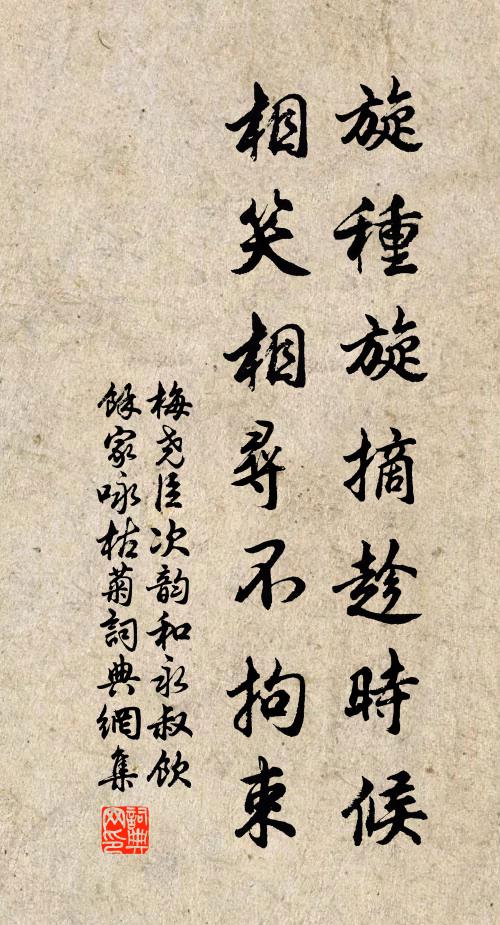 旋種旋摘趁時候
相笑相尋不拘束
梅堯臣次韵和永叔飲
餘家咏枯菊詞典網集
詞典網印